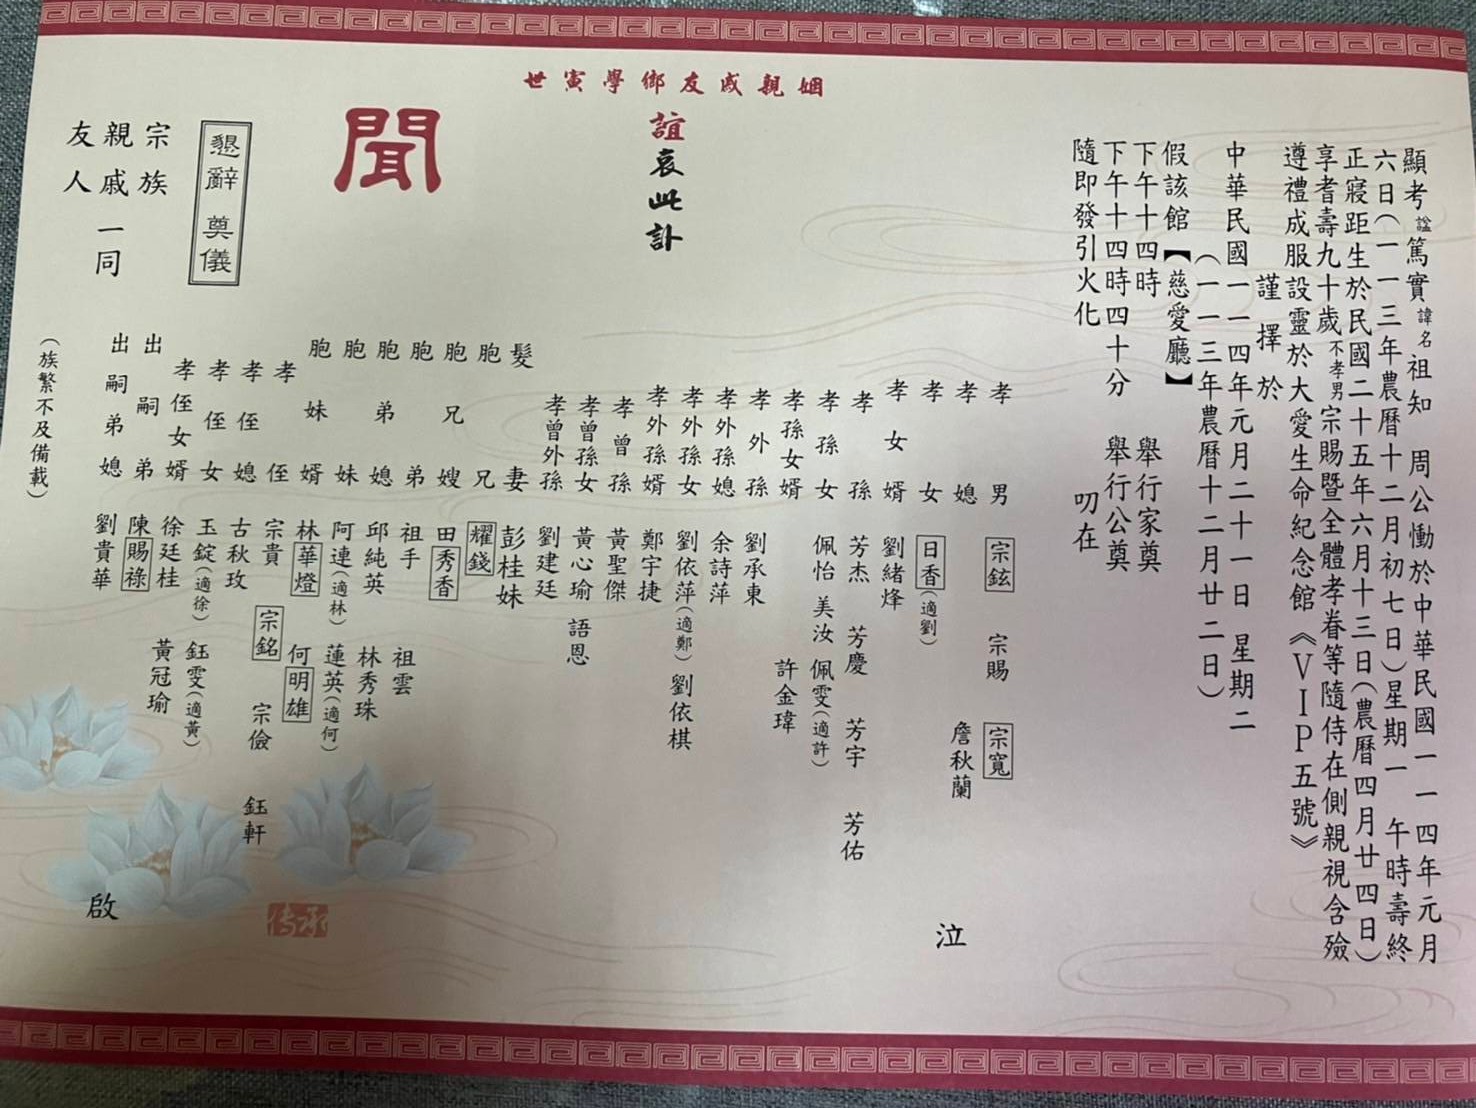 顯考 諡 篤實 諱名 祖知 周公慟於中華民國一一四年元月
六日(一一三年農曆十二月初七日)星期一 午時壽終
正寢距生於民國二十五年六月十三日(農曆四月廿四日)
享耆壽九十歲 不孝男 宗賜暨全體孝眷等隨侍在側親視含殮
遵禮成服設靈於大愛生命紀念館《VIP五號》
謹擇於
中華民國一一四年元月二十一日 星期二
(一一三年農曆十二月廿二日)
假該館【慈愛廳】
下午十四時 舉行家奠
下午十四時四十分 舉行公奠
隨即發引火化 叨在
姻親戚友鄉學寅世
誼哀此訃
聞
孝男 宗鉉 宗賜 宗寬
孝媳 詹秋蘭
孝女 日香(適劉)
孝女婿 劉緒烽
孝孫 芳杰 芳慶 芳宇 芳佑
孝孫女 佩怡 美汝 佩雯(適許)
孝孫女婿 許金瑋
孝外孫 劉承東
孝外孫媳 余詩萍
孝外孫女 劉依萍(適鄭) 劉依棋
孝外孫婿 鄭宇捷
孝曾孫 黃聖傑
孝曾孫女 黃心瑜 語恩
孝曾外孫 劉建廷
泣
髮妻 彭桂妹
胞兄 耀錢
胞兄嫂 田秀香
胞弟 祖手 祖雲
胞弟媳 邱純英 林秀珠
胞妹 阿連(適林) 蓮英(適何)
胞妹婿 林華燈 何明雄
孝侄 宗貴 宗銘 宗儉 鈺軒
孝侄媳 古秋玫
孝侄女 玉錠(適徐) 鈺雯(適黃)
孝侄女婿 徐廷桂 黃冠瑜
出嗣弟 陳賜祿
出嗣弟媳 劉貴華
啟
懇辭 奠儀
宗族
親戚一同
友人
(族繁不及備載)
传承